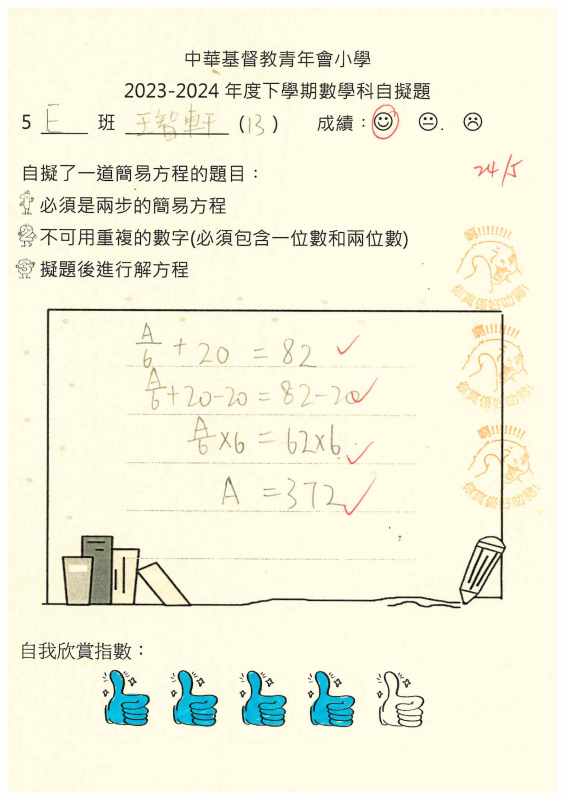 中華基督教青年會小學
2023-2024 年度下學期數學科自擬題
5 E 班 王智軒 (13) 成績：
24/5
自擬了一道簡易方程的題目：
必須是兩步的簡易方程
不可用重複的數字(必須包含一位數和兩位數)
擬題後進行解方程
A/6 + 20 = 82
A/6 + 20 - 20 = 82 - 20
A/6 × 6 = 62 × 6
A = 372
自我欣賞指數：